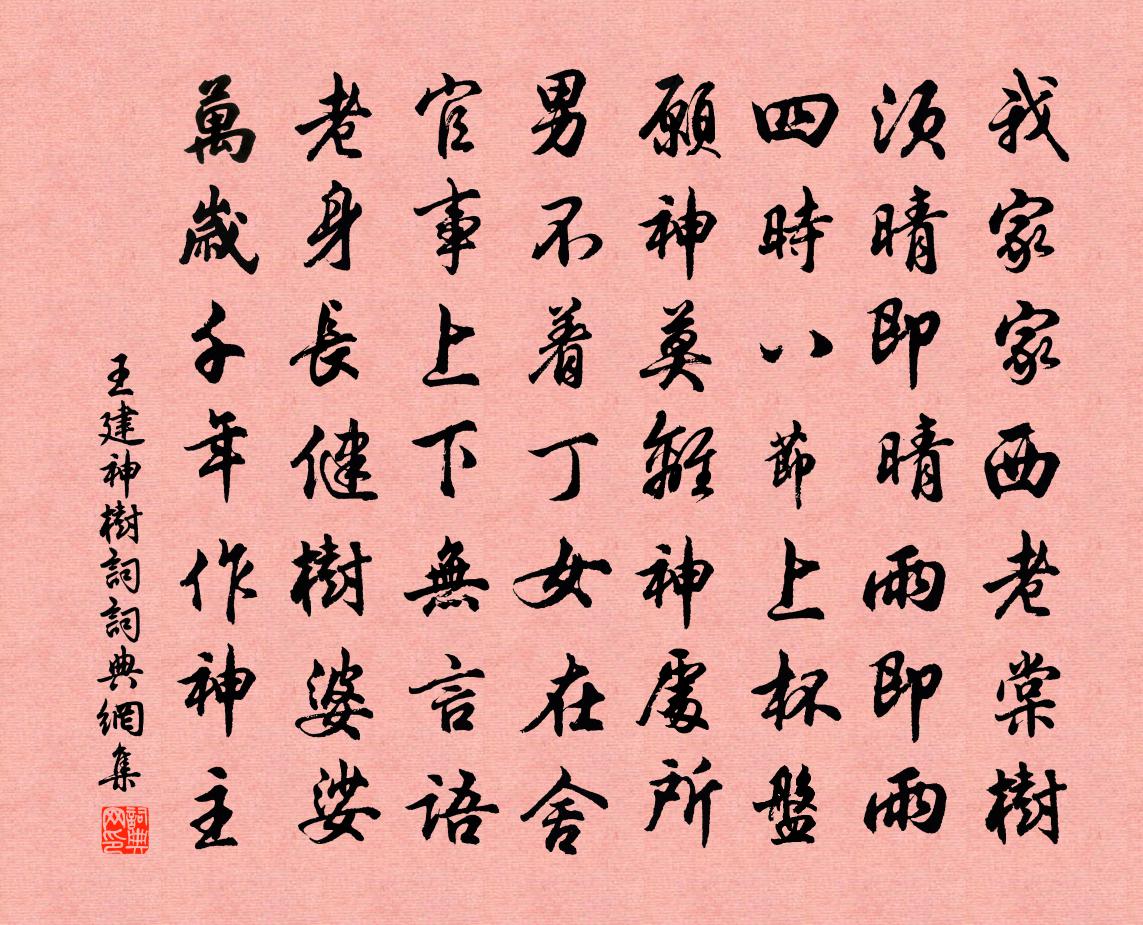 我家家西老棠樹
須晴即晴雨即雨
四時八節上杯盤
願神莫離神處所
男不着丁女在舍
官事上下無言語
老身長健樹婆娑
萬歲千年作神主
王建神樹詞詞典網集
詞典网印